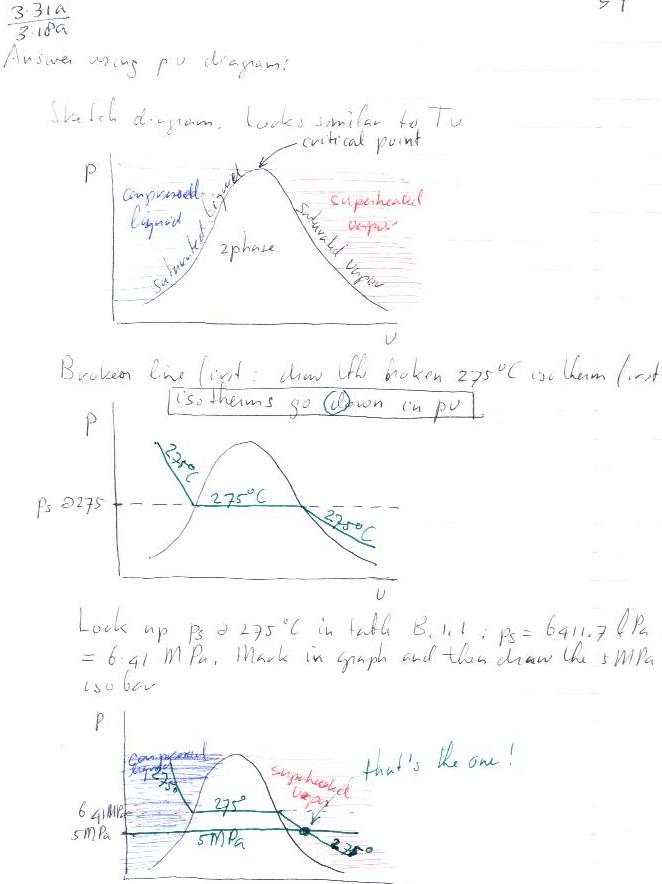 3.31a
3.18a
Answer using pv diagram:
Sketch diagram. Looks similar to Tv
critical point
P
compressed
liquid
saturated liquid
2phase
saturated vapor
superheated
vapor
v
Broken line first: draw the broken 275°C isotherm first
isotherms go down in pv
P
275°C
Ps @275
275°C
275°C
v
Look up ps @ 275°C in table B.1.1 : ps = 6411.7 kPa
= 6.41 MPa. Mark in graph and then draw the 5 MPa
isobar
P
compressed
liquid
275°
superheated
vapor
that's the one!
6.41MPa
275°
5MPa
5MPa
275°